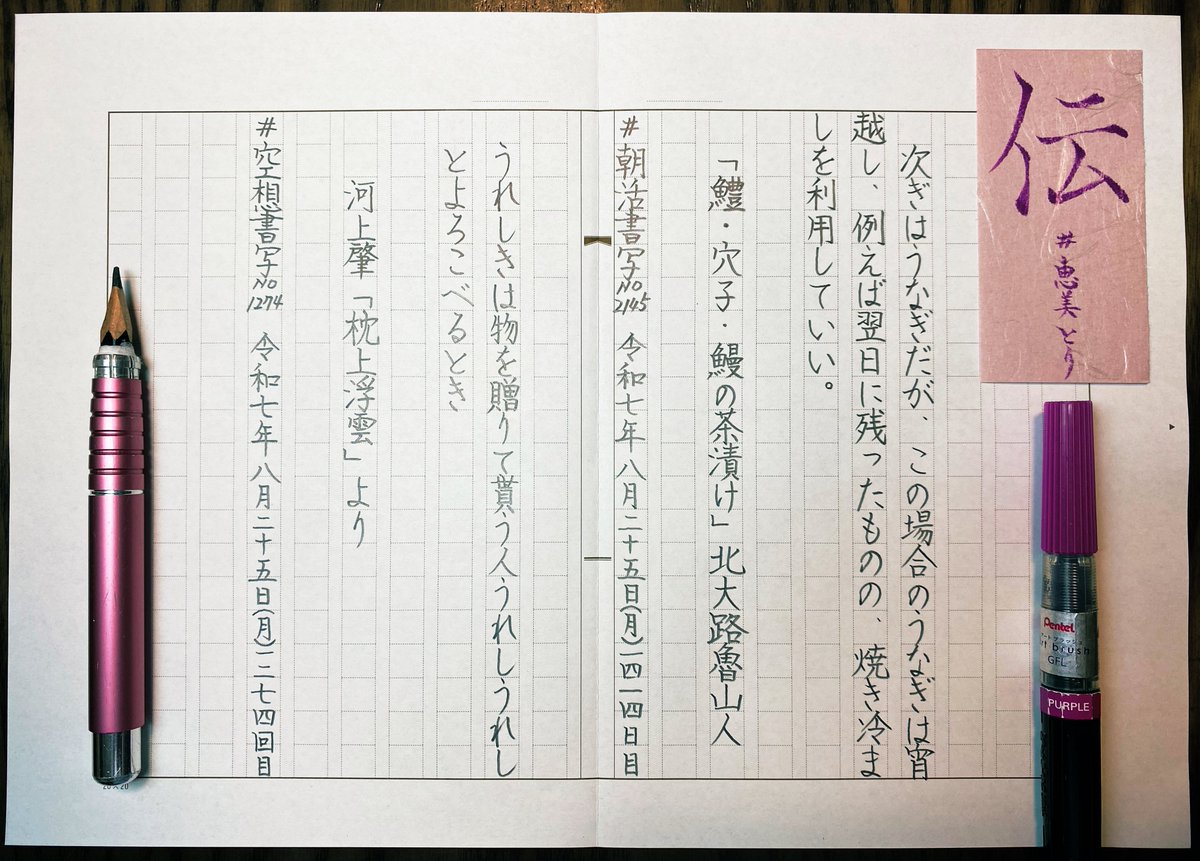 伝
#恵美とり
次ぎはうなぎだが、この場合のうなぎは宵
越し、例えば翌日に残ったものの、焼き冷ま
しを利用していい。
「鱧・穴子・鰻の茶漬け」北大路魯山人
#朝活書写No2145 令和七年八月二十五日(月)一四一四日目
うれしきは物を贈りて貰う人うれしうれし
とよろこべるとき
河上肇「枕上浮雲」より
#空想書写No1274 令和七年八月二十五日(月)一二七四回目
20×20
Pentel
アートブラッシュ
Art brush
GFL
PURPLE